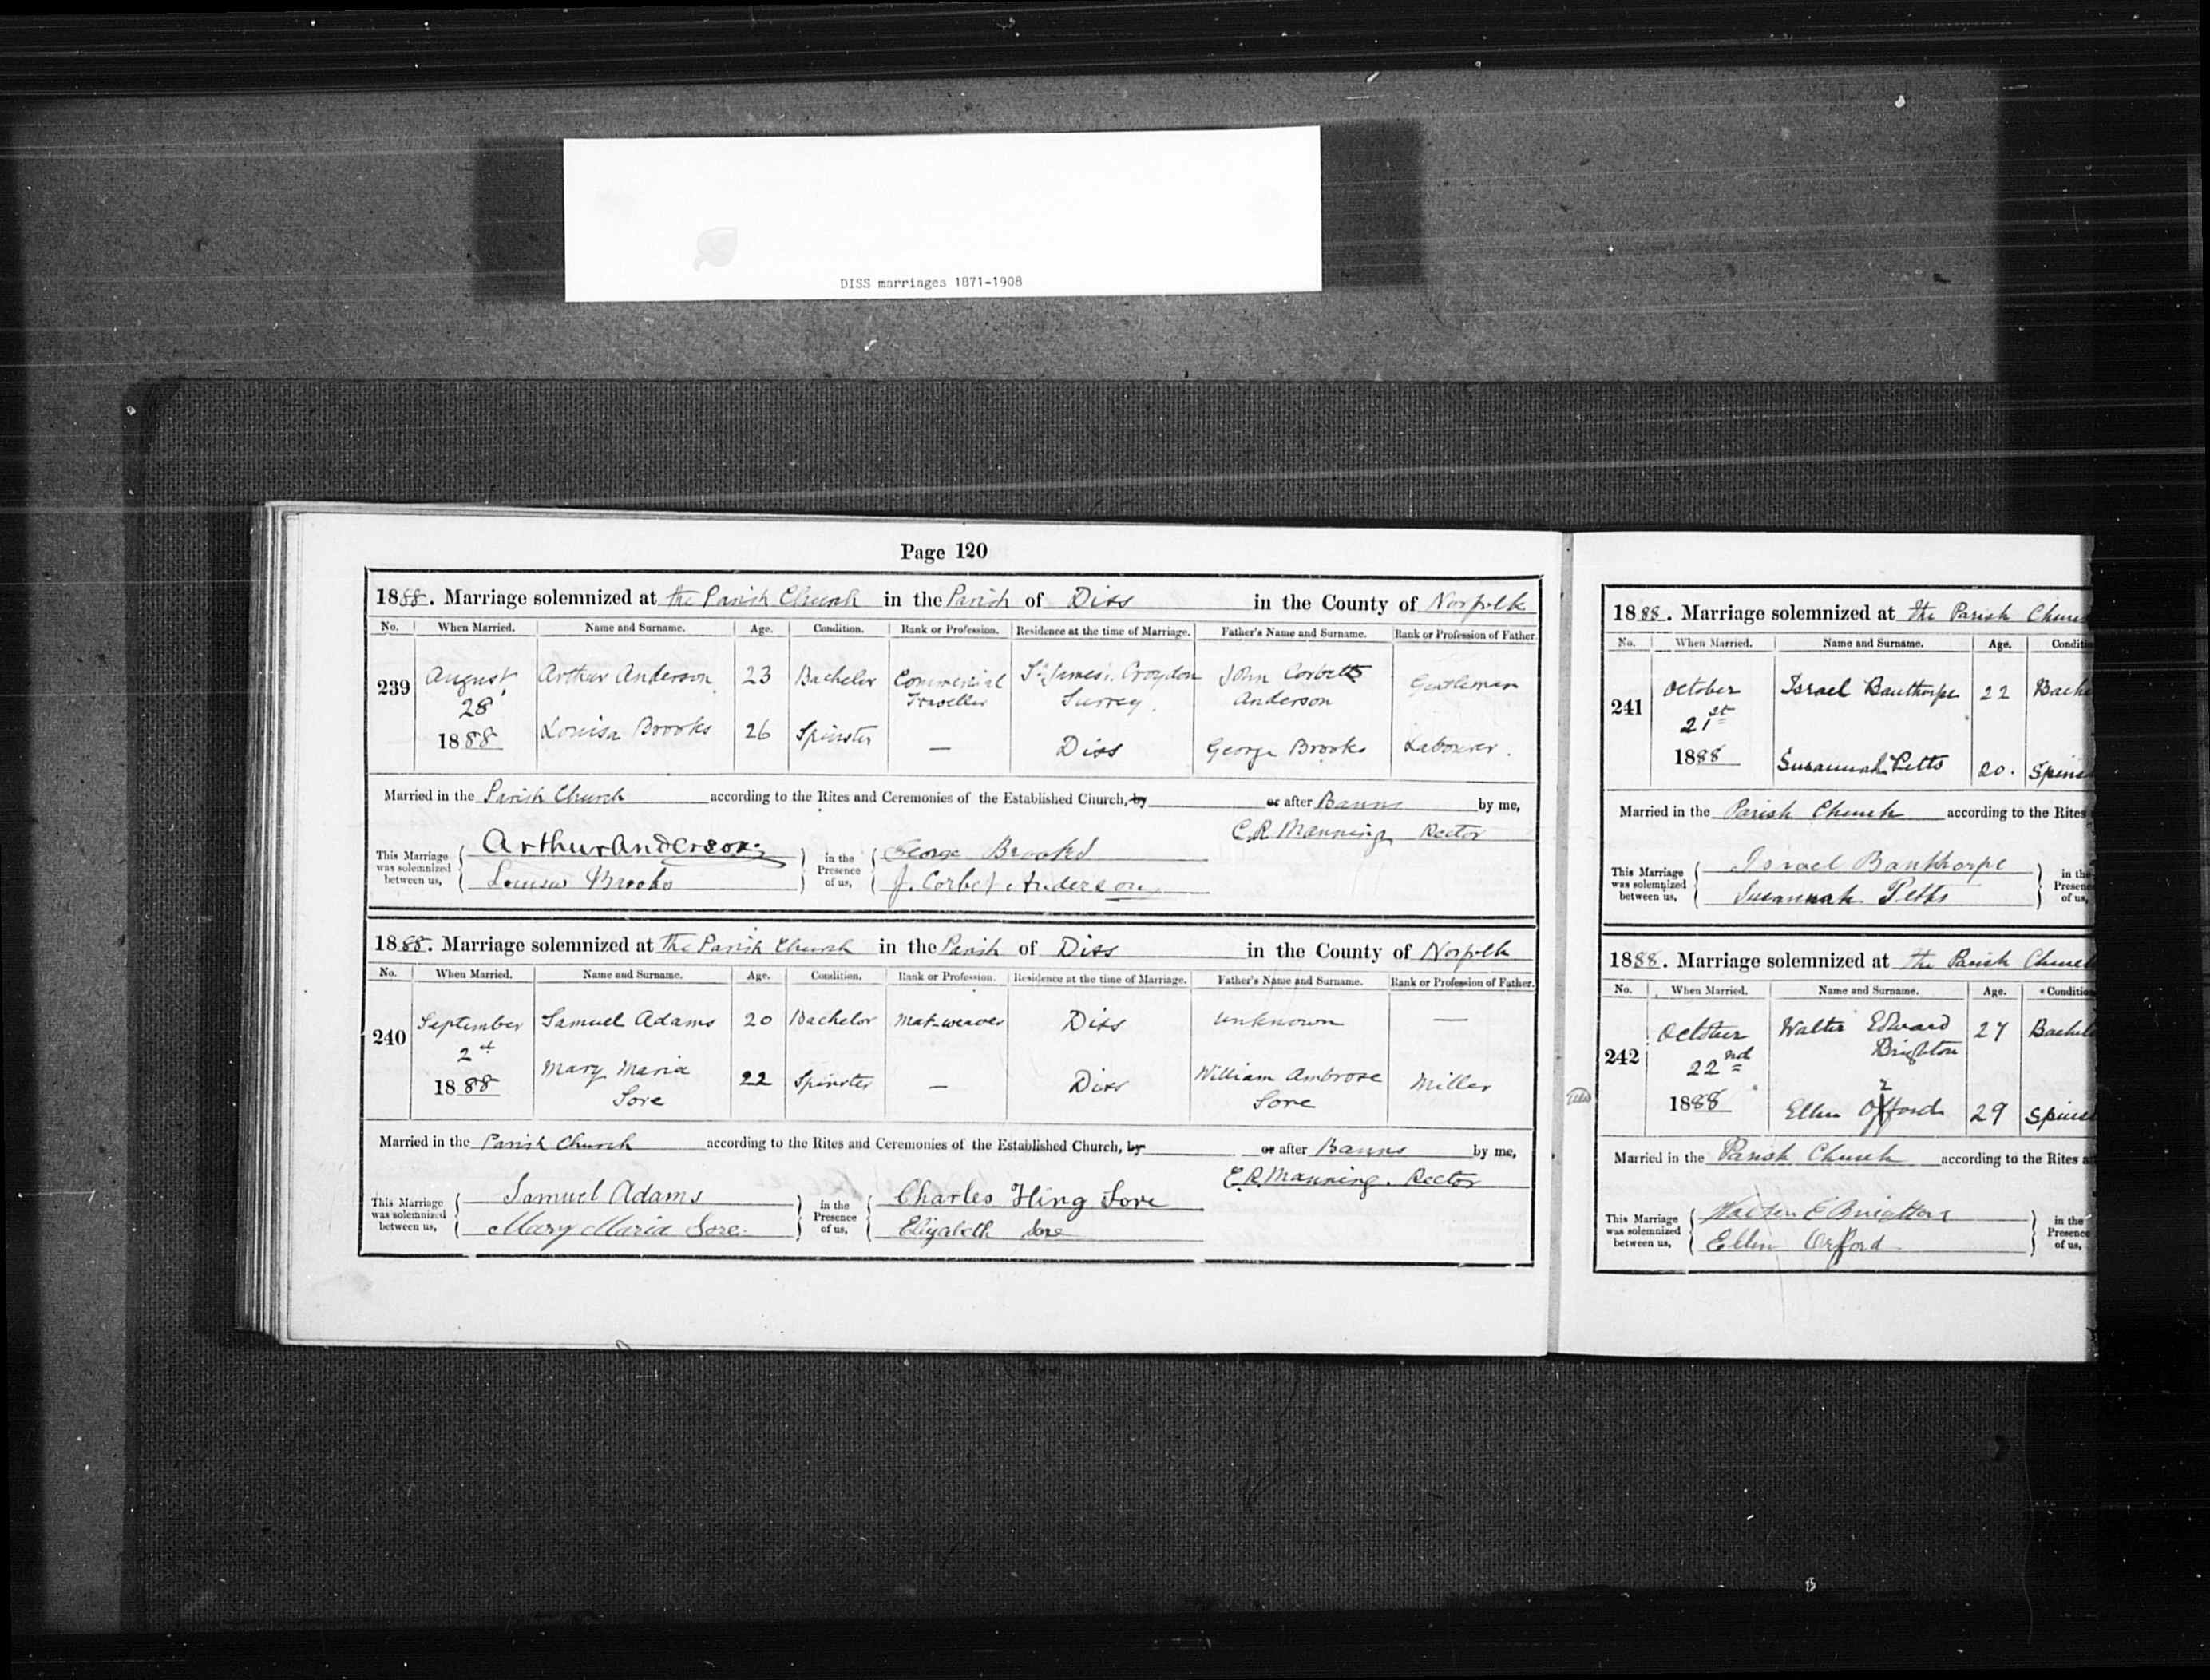 DISS marriages 1871-1908
Page 120
1888. Marriage solemnized at the Parish Church in the Parish of Diss in the County of Norfolk
No. When Married. Name and Surname. Age. Condition. Rank or Profession. Residence at the time of Marriage. Father's Name and Surname. Rank or Profession of Father.
239 August 28 1888 Arthur Anderson 23 Bachelor Commercial Traveller St James' Croydon Surrey. John Corbett Anderson Gentleman
Louisa Brooks 26 Spinster — Diss George Brooks Labourer.
Married in the Parish Church according to the Rites and Ceremonies of the Established Church, by or after Banns by me,
C.R. Manning Rector
This Marriage was solemnized between us, Arthur Anderson Louisa Brooks in the Presence of us, George Brooks J. Corbet Anderson
1888. Marriage solemnized at the Parish Church in the Parish of Diss in the County of Norfolk
No. When Married. Name and Surname. Age. Condition. Rank or Profession. Residence at the time of Marriage. Father's Name and Surname. Rank or Profession of Father.
240 September 2d 1888 Samuel Adams 20 Bachelor Mat-weaver Diss unknown —
Mary Maria Sore 22 Spinster — Diss William Ambrose Sore Miller
Married in the Parish Church according to the Rites and Ceremonies of the Established Church, by or after Banns by me,
C.R. Manning. Rector
This Marriage was solemnized between us, Samuel Adams Mary Maria Sore in the Presence of us, Charles Hing Sore Elizabeth Sore
1888. Marriage solemnized at the Parish Church
No. When Married. Name and Surname. Age. Conditi
241 October 21st 1888 Israel Banthorpe 22 Bache
Susannah Petts 20. Spins
Married in the Parish Church according to the Rites
This Marriage was solemnized between us, Israel Banthorpe Susannah Petts in the Presence of us,
1888. Marriage solemnized at the Parish Church
No. When Married. Name and Surname. Age. Condition
242 October 22nd 1888 Walter Edward Brighton 27 Bachel
Ellen Orford 29 Spins
Married in the Parish Church according to the Rites a
This Marriage was solemnized between us, Walter E Brighton Ellen Orford in the Presence of us,